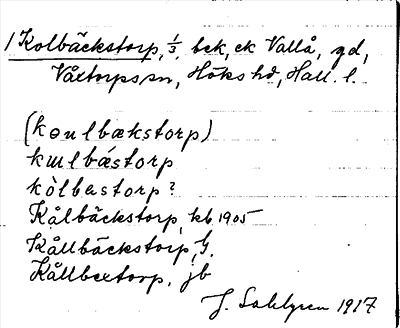 1 Kolbäckstorp, 1/3, bck, ck Vallå, gd,
Våxtorps sn, Höks hd, Hall. l.
(koulbækstorp)
kɯlbástorp
kòlbastorp?
Kålbäckstorp, kb. 1905
Kållbäckstorp, G.
Kållbextorp, jb
J. Sahlgren 1917